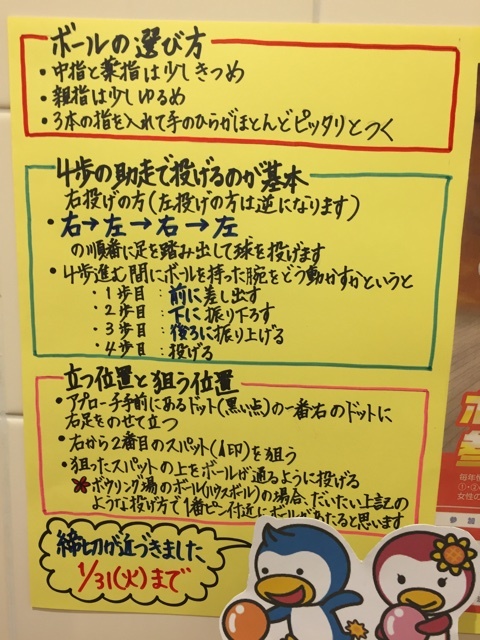 ボールの選び方
・中指と薬指は少しきつめ
・親指は少しゆるめ
・3本の指を入れて手のひらがほとんどピッタリとつく
4歩の助走で投げるのが基本
右投げの方(左投げの方は逆になります)
・右→左→右→左
の順番に足を踏み出して球を投げます
・4歩進む間にボールを持った腕をどう動かすかというと
・1歩目:前に差し出す
・2歩目:下に振り下ろす
・3歩目:後ろに振り上げる
・4歩目:投げる
立つ位置と狙う位置
・アプローチ手前にあるドット(黒い点)の一番右のドットに
右足をのせて立つ
・右から2番目のスパット(▲印)を狙う
・狙ったスパットの上をボールが通るように投げる
※ボウリング場のボール(ハウスボール)の場合、だいたい上記の
ような投げ方で1番ピン付近にボールがあたると思います
締切が近づきました
1/31(火)まで
毎年
①・②
女性の
参加